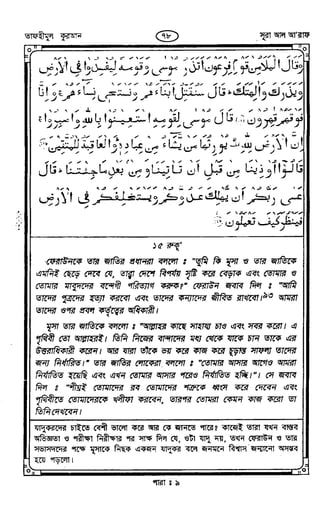 তাফহীমুল কুরআন
৭৮
সূরা আল আ'রাফ
وَقَالَ الْمَلَأُ مِنْ قَوْمِ فِرْعَوْنَ أَتَذَرُ مُوسَى وَقَوْمَهُ لِيُفْسِدُوا فِي الْأَرْضِ
وَيَذَرَكَ وَآلِهَتَكَ ۚ قَالَ سَنُقَتِّلُ أَبْنَاءَهُمْ وَنَسْتَحْيِي نِسَاءَهُمْ وَإِنَّا
فَوْقَهُمْ قَاهِرُونَ قَالَ مُوسَى لِقَوْمِهِ اسْتَعِينُوا بِاللَّهِ وَاصْبِرُوا ۖ
إِنَّ الْأَرْضَ لِلَّهِ يُورِثُهَا مَنْ يَشَاءُ مِنْ عِبَادِهِ ۖ وَالْعَاقِبَةُ لِلْمُتَّقِينَ
قَالُوا أُوذِينَا مِنْ قَبْلِ أَنْ تَأْتِيَنَا وَمِنْ بَعْدِ مَا جِئْتَنَا ۚ قَالَ
عَسَى رَبُّكُمْ أَنْ يُهْلِكَ عَدُوَّكُمْ وَيَسْتَخْلِفَكُمْ فِي الْأَرْضِ
فَيَنْظُرَ كَيْفَ تَعْمَلُونَ
১৫ রুকু'
ফেরাউনকে তার জাতির প্রধানরা বললো : "তুমি কি মূসা ও তার জাতিকে
এমনিই ছেড়ে দেবে যে, তারা দেশে বিপর্যয় সৃষ্টি করে বেড়াক এবং তোমার ও
তোমার মাবুদদের বন্দেগী পরিত্যাগ করুক?" ফেরাউন জবাব দিল : "আমি
তাদের পুত্রদের হত্যা করবো এবং তাদের কন্যাদের জীবিত রাখবো। আমরা
তাদের ওপর প্রবল কর্তৃত্বের অধিকারী।
মূসা তার জাতিকে বললো : "আল্লাহর কাছে সাহায্য চাও এবং সবর করো। এ
পৃথিবী তো আল্লাহরই। তিনি নিজের বান্দাদের মধ্য থেকে যাকে চান তাকে এর
উত্তরাধিকারী করেন। আর যারা তাঁকে ভয় করে কাজ করে চূড়ান্ত সাফল্য তাদের
জন্য নির্ধারিত।" তার জাতির লোকেরা বললো : "তোমার আসার আগেও আমরা
নির্যাতিত হয়েছি এবং এখন তোমার আসার পরেও নির্যাতিত হচ্ছি।" সে জবাব
দিল : "শীঘ্রই তোমাদের রব তোমাদের শত্রুকে ধ্বংস করে দেবেন এবং
পৃথিবীতে তোমাদেরকে খলীফা করবেন, তারপর তোমরা কেমন কাজ করো তা
তিনি দেখবেন।
যাদুকরদের চাইতে বেশী ভালো করে আর কে জানতে পারে? কাজেই তারা যখন বাস্তব
অভিজ্ঞতা ও পরীক্ষা নিরীক্ষার পর সাক্ষ দিল যে, ওটা যাদু নয়, তখন ফেরাউন ও তার
সভাসদদের পক্ষে মূসাকে নিছক একজন যাদুকর বলে জনমনে বিশ্বাস জন্মানো অসম্ভব
হয়ে পড়লো।
পারা : ৯